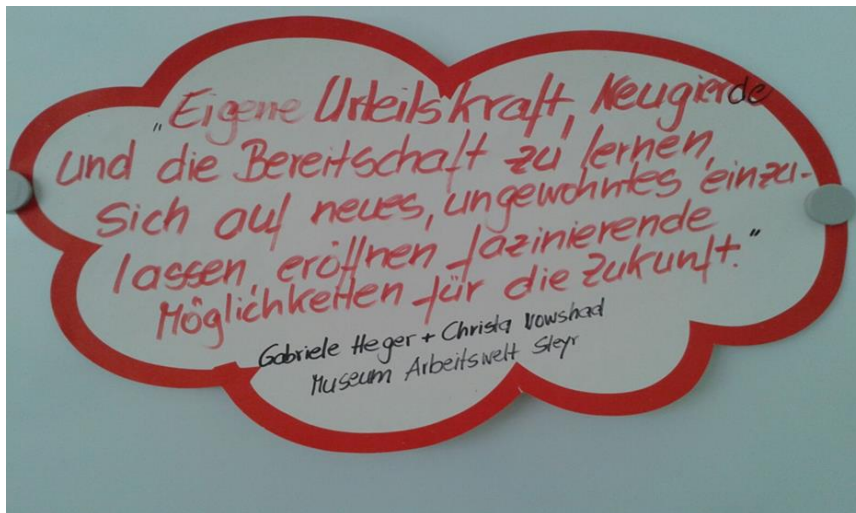 „Eigene Urteilskraft, Neugierde
und die Bereitschaft zu lernen,
sich auf neues, ungewohntes einzu-
lassen, eröffnen fazinierende
Möglichkeiten für die Zukunft."
Gabriele Heger + Christa Vowshad
Museum Arbeitswelt Steyr